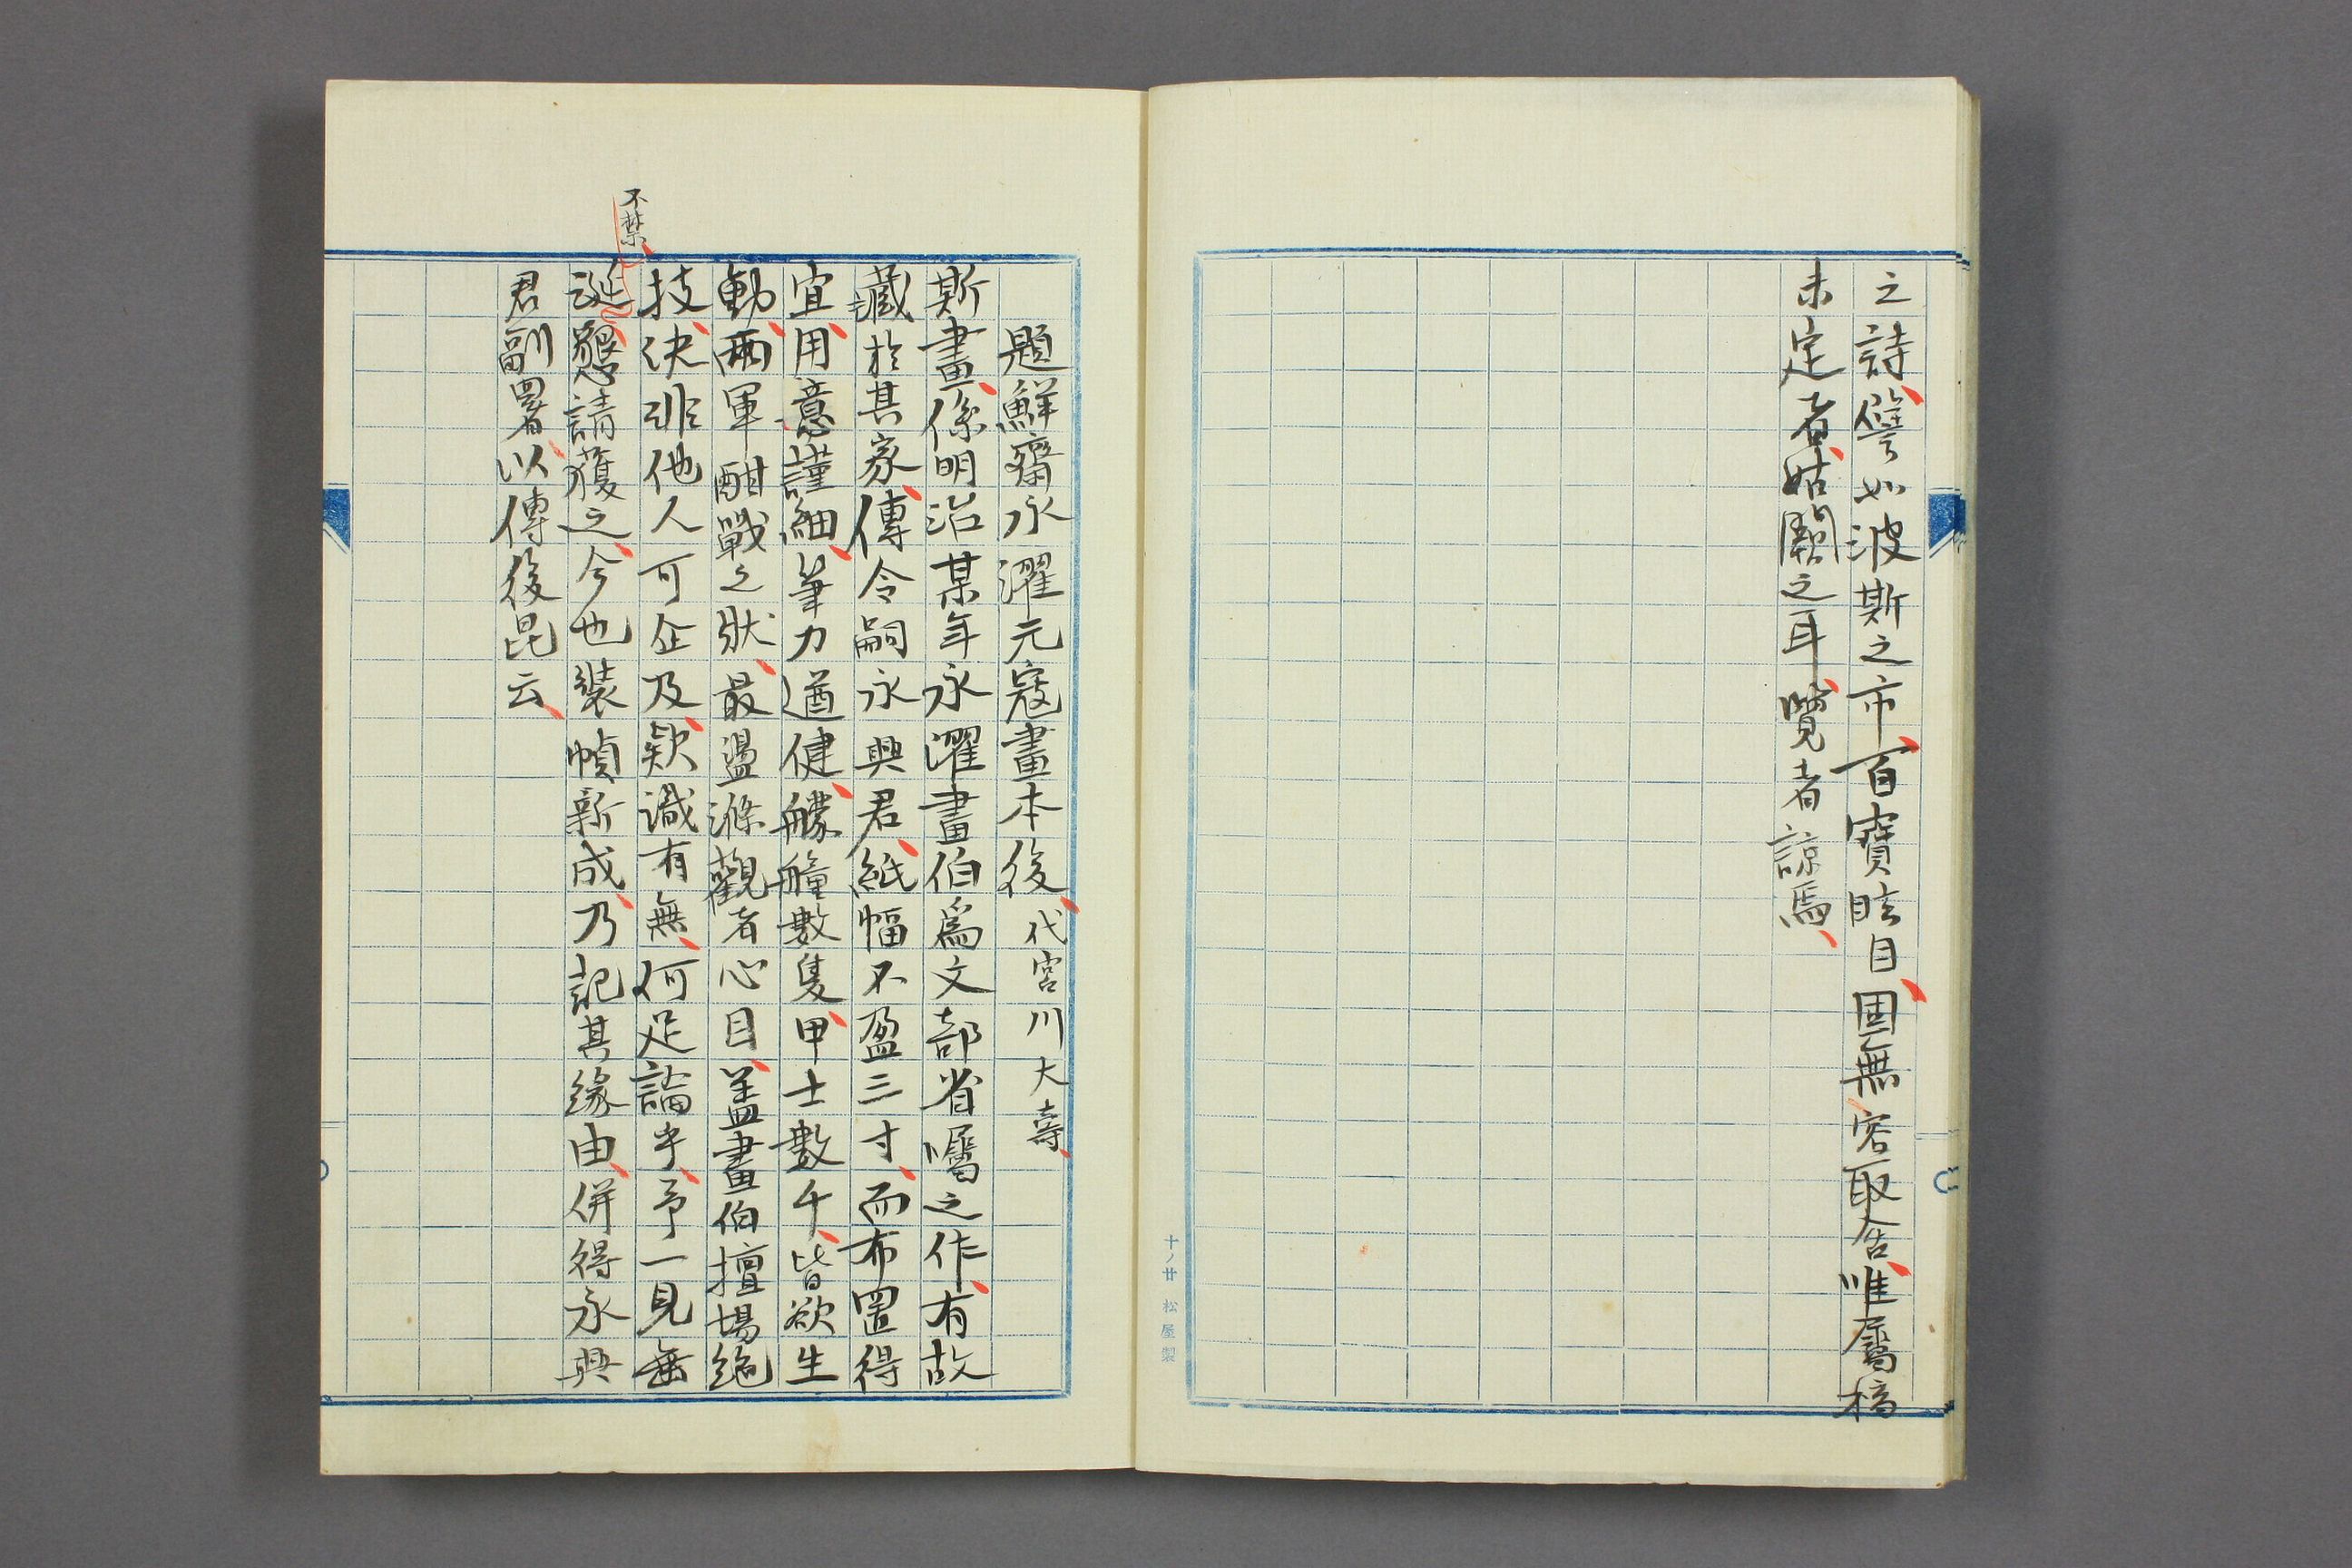 之詩、譬如波斯之市、百寶眩目、固無容取舍、唯屬稿
未定者、姑闕之耳、覽者諒焉、
十ノ廿 松屋製
題鮮齋永濯元寇畫本後、代宮川大壽、
斯畫、係明治某年永濯畫伯爲文部省囑之作、有故
藏於其家、傳令嗣永興君、紙幅不盈三寸、而布置得
宜、用意謹細、筆力遒健、艨艟數隻、甲士數千、皆欲生
動、兩軍酣戰之狀、最盪滌觀者心目、蓋畫伯擅場絶
技、決非他人可企及、欵識有無、何足論乎、予一見垂
不禁、
涎懇請獲之、今也裝幀新成、乃記其縁由、併得永興
君副署、以傳後昆云、